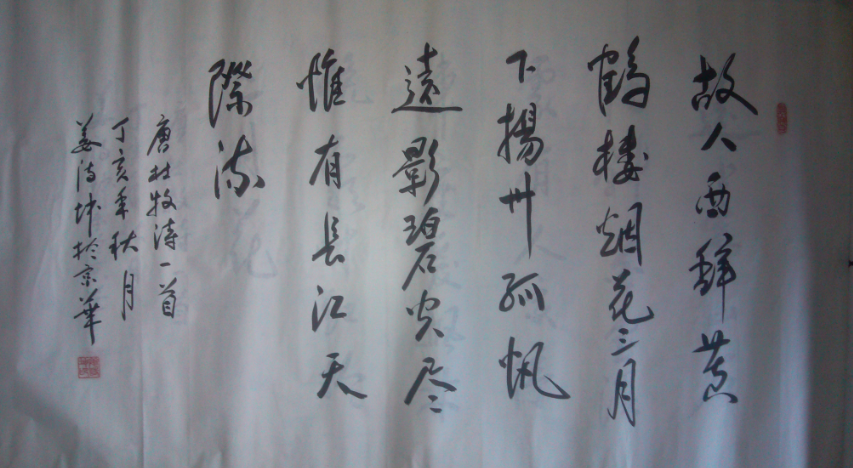 故人西辞黄
鹤楼烟花三月
下揚州孤帆
遠影碧空尽
惟有長江天
際流
唐杜牧诗一首
丁亥年秋月
姜诗坤於京華